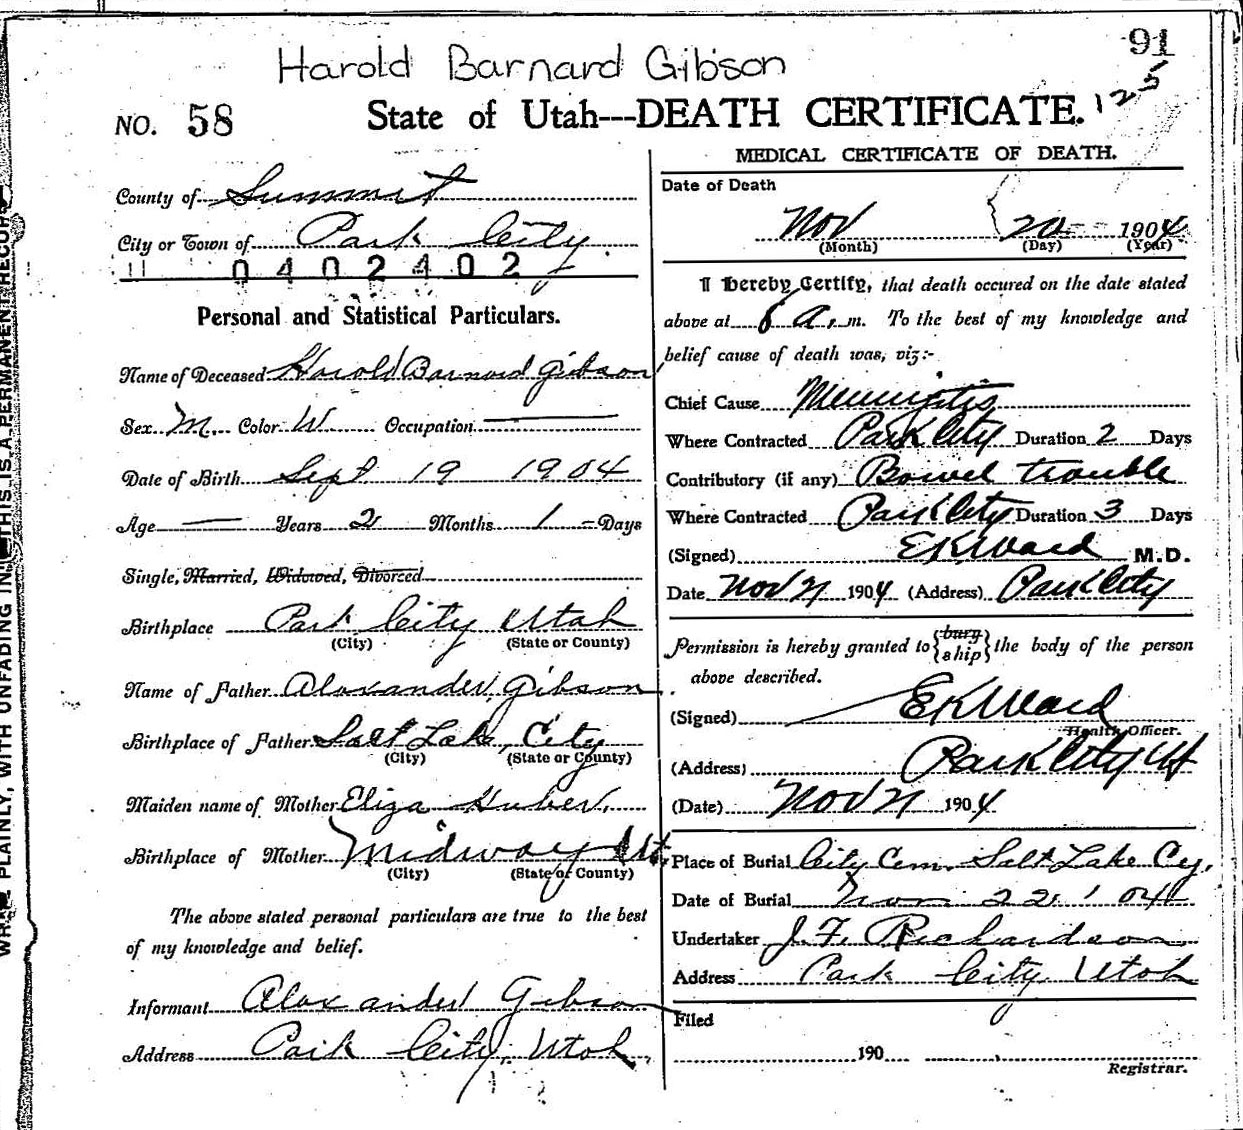 91
Harold Barnard Gibson
125
NO. 58 State of Utah---DEATH CERTIFICATE.
County of Summit
City or Town of Park City
11 0402402
Personal and Statistical Particulars.
Name of Deceased Harold Barnard Gibson
Sex M. Color W Occupation —
Date of Birth Sept 19 1904
Age — Years 2 Months 1 - Days
Single, Married, Widowed, Divorced
Birthplace Park City Utah
(City) (State or County)
Name of Father Alexander Gibson
Birthplace of Father Salt Lake City
(City) (State or County)
Maiden name of Mother Eliza Huber
Birthplace of Mother Midway Ut.
(City) (State or County)
The above stated personal particulars are true to the best
of my knowledge and belief.
Informant Alexander Gibson
Address Park City, Utah
MEDICAL CERTIFICATE OF DEATH.
Date of Death
Nov 20 1904
(Month) (Day) (Year)
I hereby Certify, that death occured on the date stated
above at a.m. To the best of my knowledge and
belief cause of death was, viz:-
Chief Cause Meningitis
Where Contracted Park City Duration 2 Days
Contributory (if any) Bowel trouble
Where Contracted Park City Duration 3 Days
(Signed) EKWard M.D.
Date Nov 21 1904 (Address) Park City
Permission is hereby granted to {bury ship} the body of the person
above described.
(Signed) EKWard
Health Officer.
(Address) Park City Ut
(Date) Nov 21 1904
Place of Burial City Cem. Salt Lake Cy.
Date of Burial Nov 22, '04
Undertaker J. F. Richardson
Address Park City Utah
Filed
190
Registrar.
PLAINLY, WITH UNFADING INK THIS IS A PERMANENT RECORD